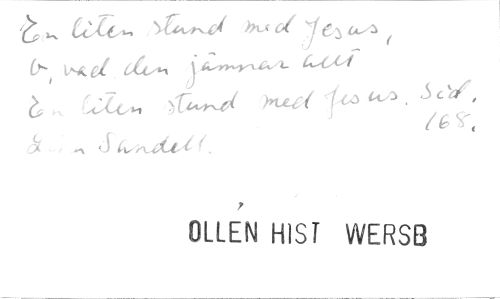 En liten stund med Jesus,
O, vad den jämnar allt
En liten stund med Jesus. Sid.
168.
Lina Sandell.
OLLÉN HIST WERSB